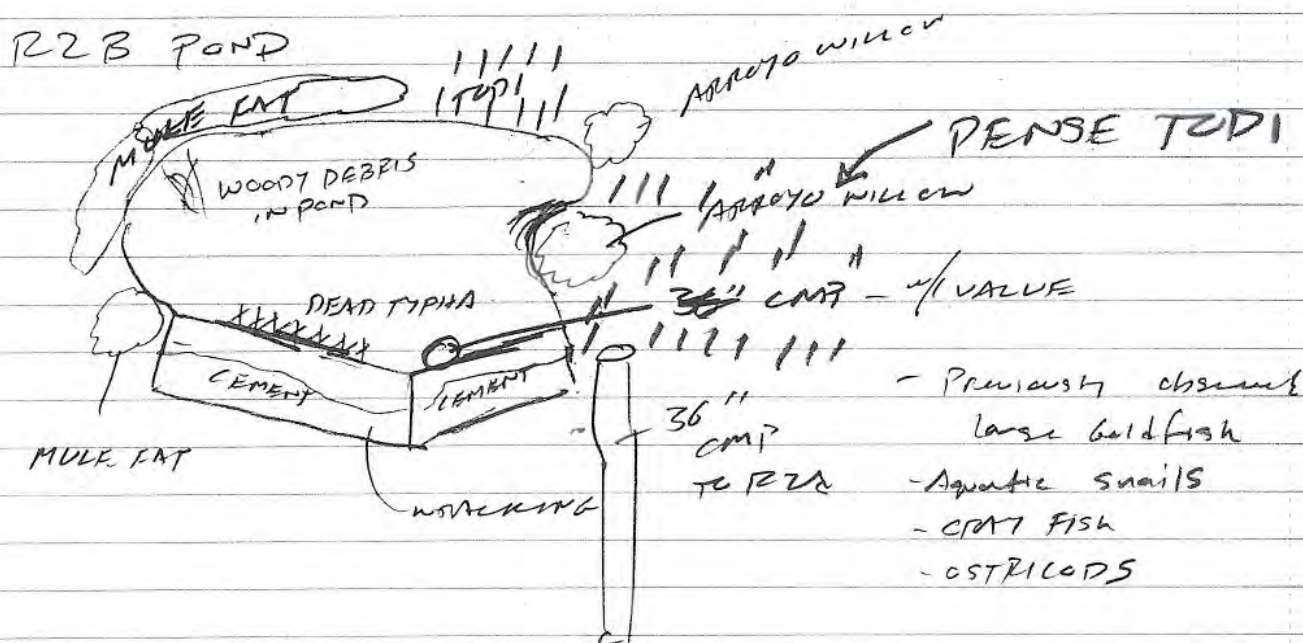 R2B POND
MULE FAT
TODI
ARROYO WILLOW
DENSE TODI
WOODY DEBRIS
IN POND
ARROYO WILLOW
DEAD TYPHA
36" CMP - W/ VALUE
CEMENT
CEMENT
MULE FAT
WRACKING
36"
CMP
TO R2A
- Previously observed
large Goldfish
- Aquatic snails
- CRAY FISH
- OSTRICODS